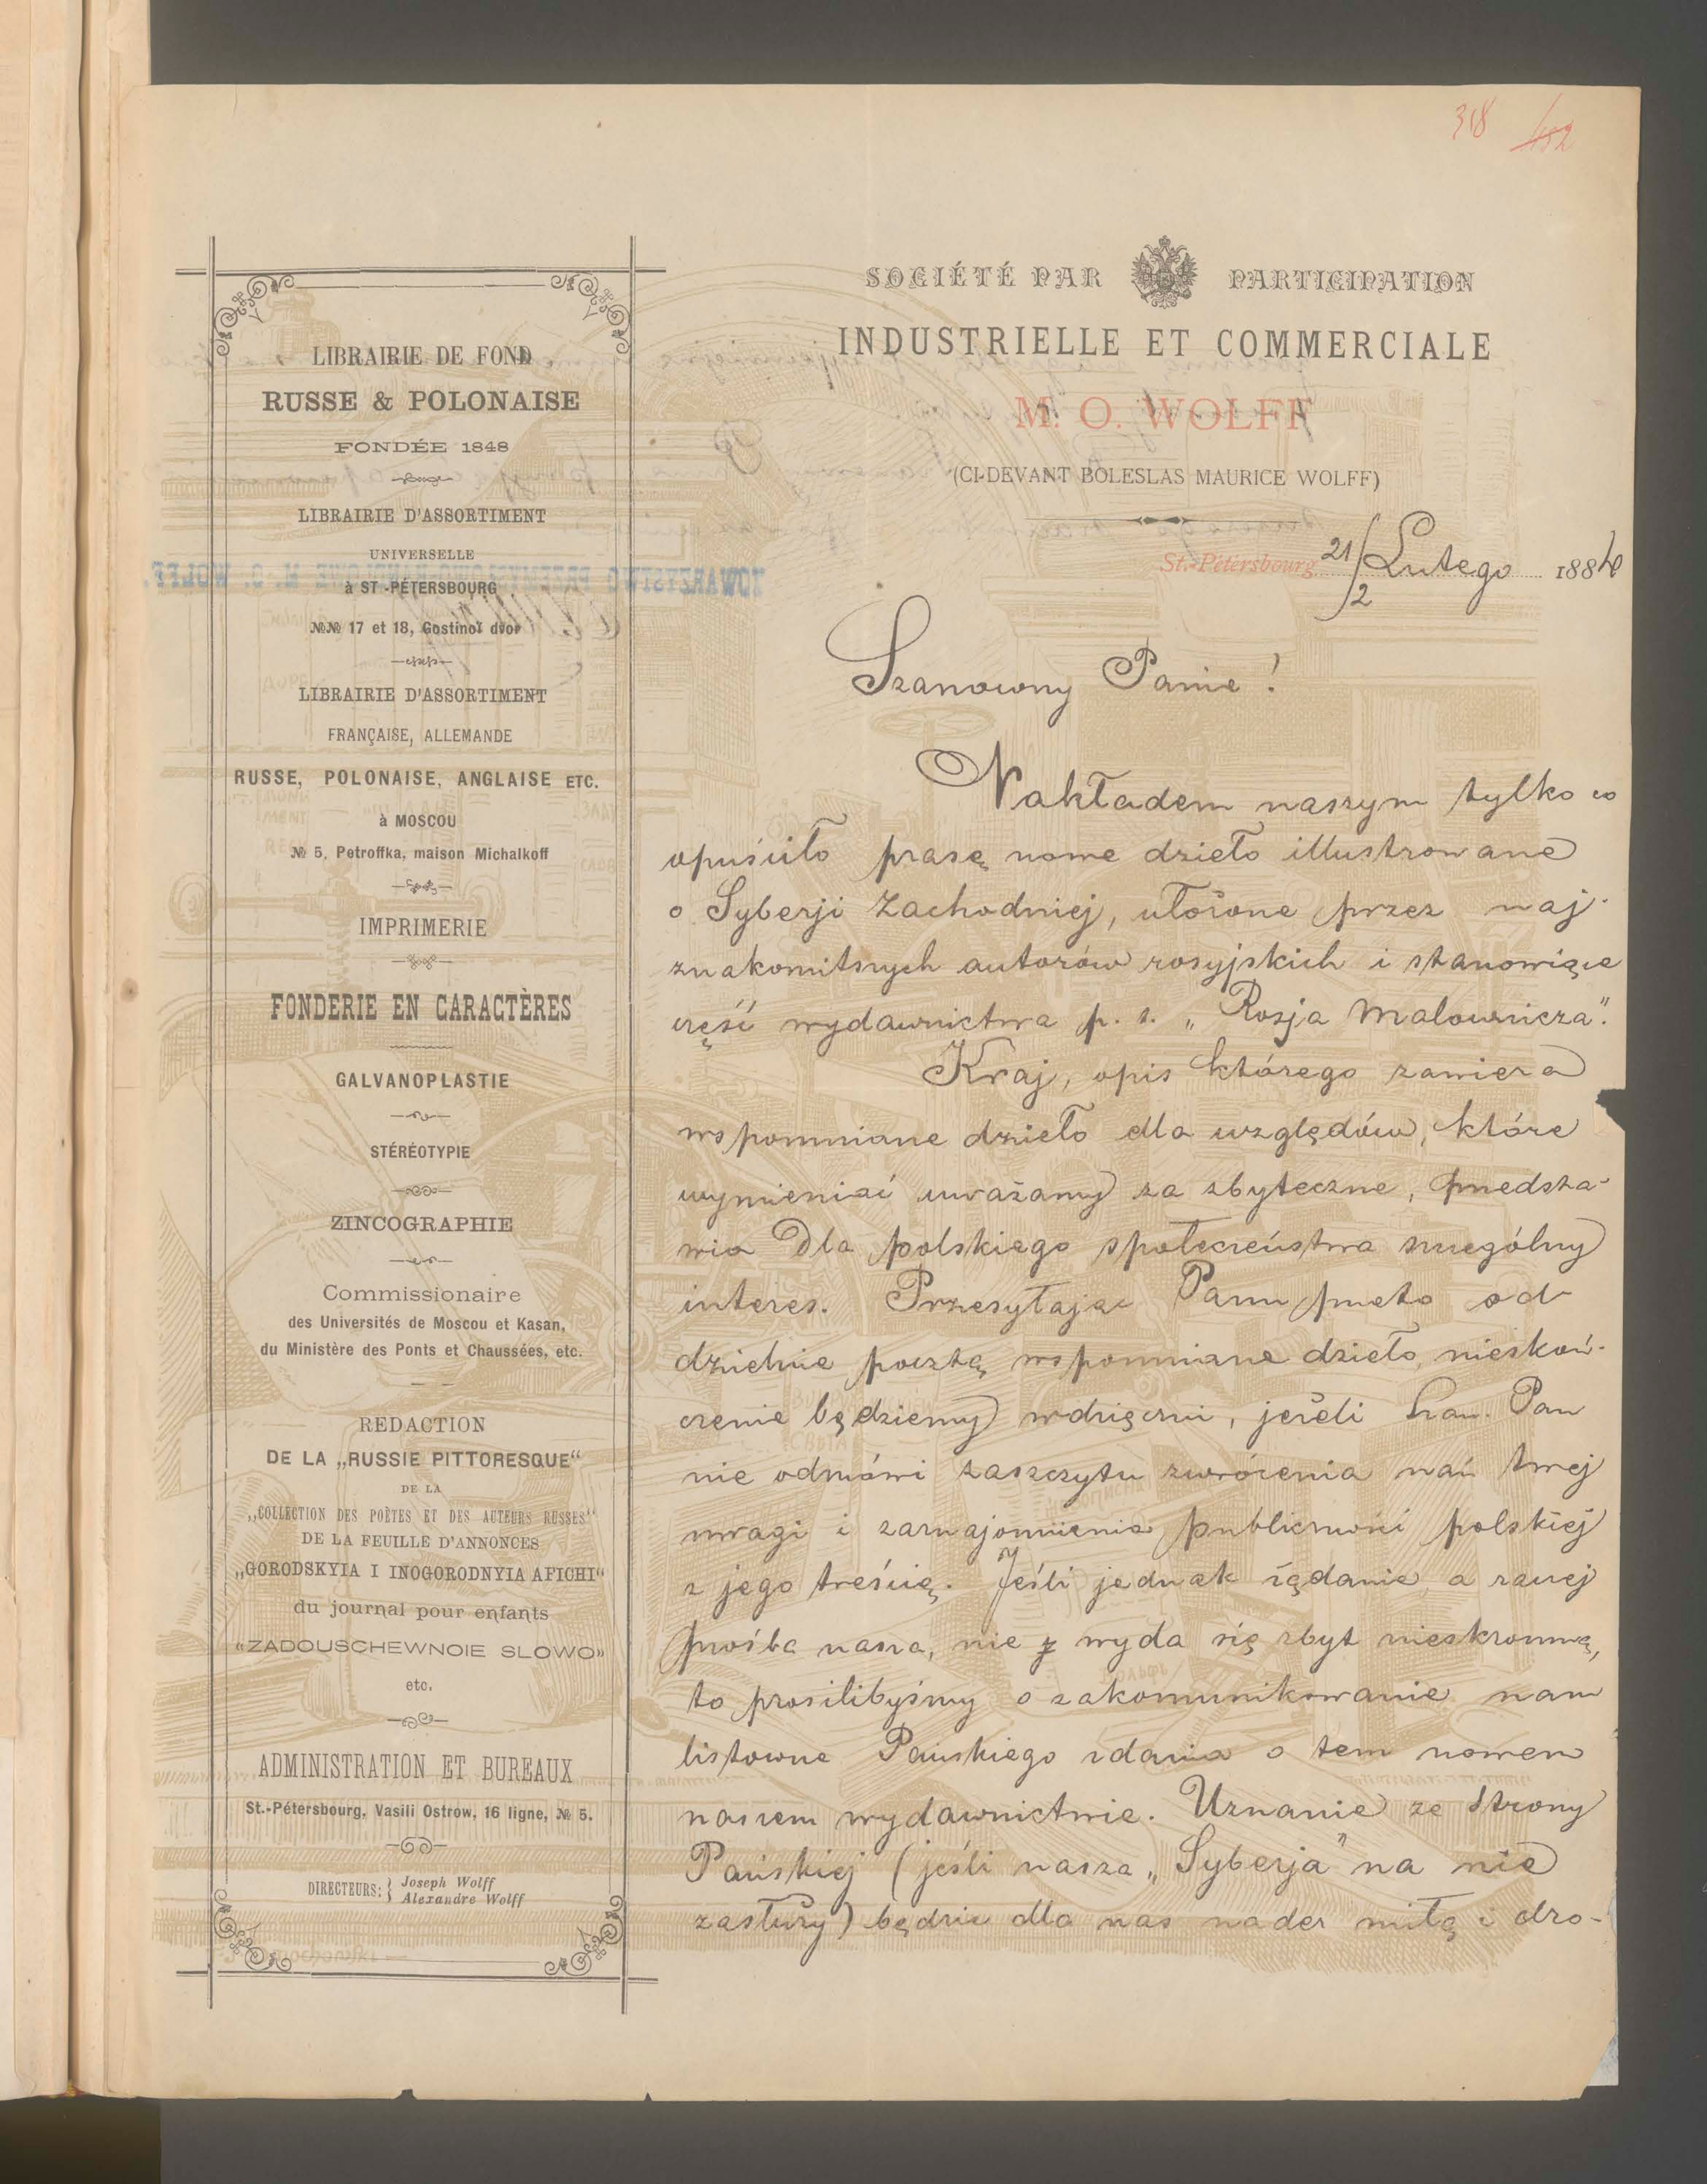 318 152
SOCIÉTÉ PAR PARTICIPATION
INDUSTRIELLE ET COMMERCIALE
M. O. WOLFF
(CI-DEVANT BOLESLAS MAURICE WOLFF)
St.-Pétersbourg 21/2 Lutego 1884
LIBRAIRIE DE FOND
RUSSE & POLONAISE
FONDÉE 1848
LIBRAIRIE D'ASSORTIMENT
UNIVERSELLE
à ST.-PÉTERSBOURG
№№ 17 et 18, Gostinoï dvor
LIBRAIRIE D'ASSORTIMENT
FRANÇAISE, ALLEMANDE
RUSSE, POLONAISE, ANGLAISE ETC.
à MOSCOU
№ 5, Petroffka, maison Michalkoff
IMPRIMERIE
FONDERIE EN CARACTÈRES
GALVANOPLASTIE
STÉRÉOTYPIE
ZINCOGRAPHIE
Commissionaire
des Universités de Moscou et Kasan,
du Ministère des Ponts et Chaussées, etc.
REDACTION
DE LA „RUSSIE PITTORESQUE“
DE LA
„COLLECTION DES POÈTES ET DES AUTEURS RUSSES“
DE LA FEUILLE D'ANNONCES
„GORODSKYIA I INOGORODNYIA AFICHI“
du journal pour enfants
«ZADOUSCHEWNOIE SLOWO»
etc.
ADMINISTRATION ET BUREAUX
St.-Pétersbourg, Vasili Ostrow, 16 ligne, № 5.
DIRECTEURS: Joseph Wolff
Alexandre Wolff
Szanowny Panie!
Nakładem naszym tylko co
opuściło prasę nowe dzieło illustrowane
o Syberji Zachodniej, ułożone przez naj-
znakomitszych autorów rosyjskich i stanowiące
część wydawnictwa p. t. „Rosja Malownicza“.
Kraj, opis którego zawiera
wspomniane dzieło dla względów, które
wymieniać uważamy za zbyteczne, przedsta-
wia dla polskiego społeczeństwa szczególny
interes. Przesyłając Panu przeto od-
dzielnie pocztą wspomniane dzieło, nieskoń-
czenie będziemy wdzięczni, jeżeli Szan. Pan
nie odmówi zaszczytu zwrócenia nań swej
uwagi i zaznajomienia publiczności polskiej
z jego treścią. Jeśli jednak żądanie, a raczej
prośba nasza, nie wyda się zbyt nieskromną,
to prosilibyśmy o zakomunikowanie nam
listowne Pańskiego zdania o tem nowem
naszem wydawnictwie. Uznanie ze strony
Pańskiej (jeśli nasza „Syberja“ na nie
zasłuży) będzie dla nas nader miłą i dro-